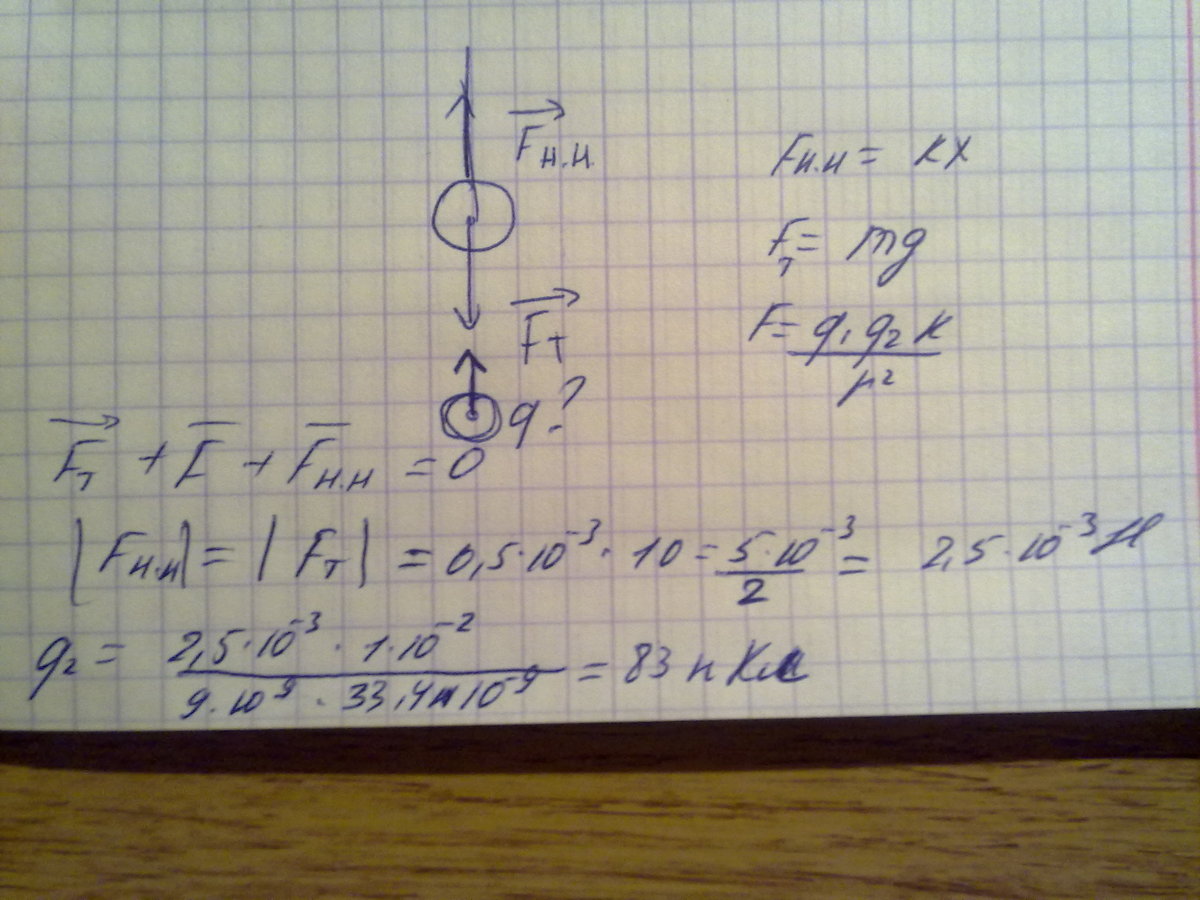 F н.н.
Fн.н = кх
Fт = mg
Fт
F = q₁ q₂ к / r²
q?
Fт + F + Fн.н = 0
|Fн.н| = |Fт| = 0,5·10⁻³·10 = 5·10⁻³ / 2 = 2,5·10⁻³ Н
q₂ = 2,5·10⁻³ · 1·10⁻² / 9·10⁹ · 33,4 10⁻⁹ = 83 н Кл